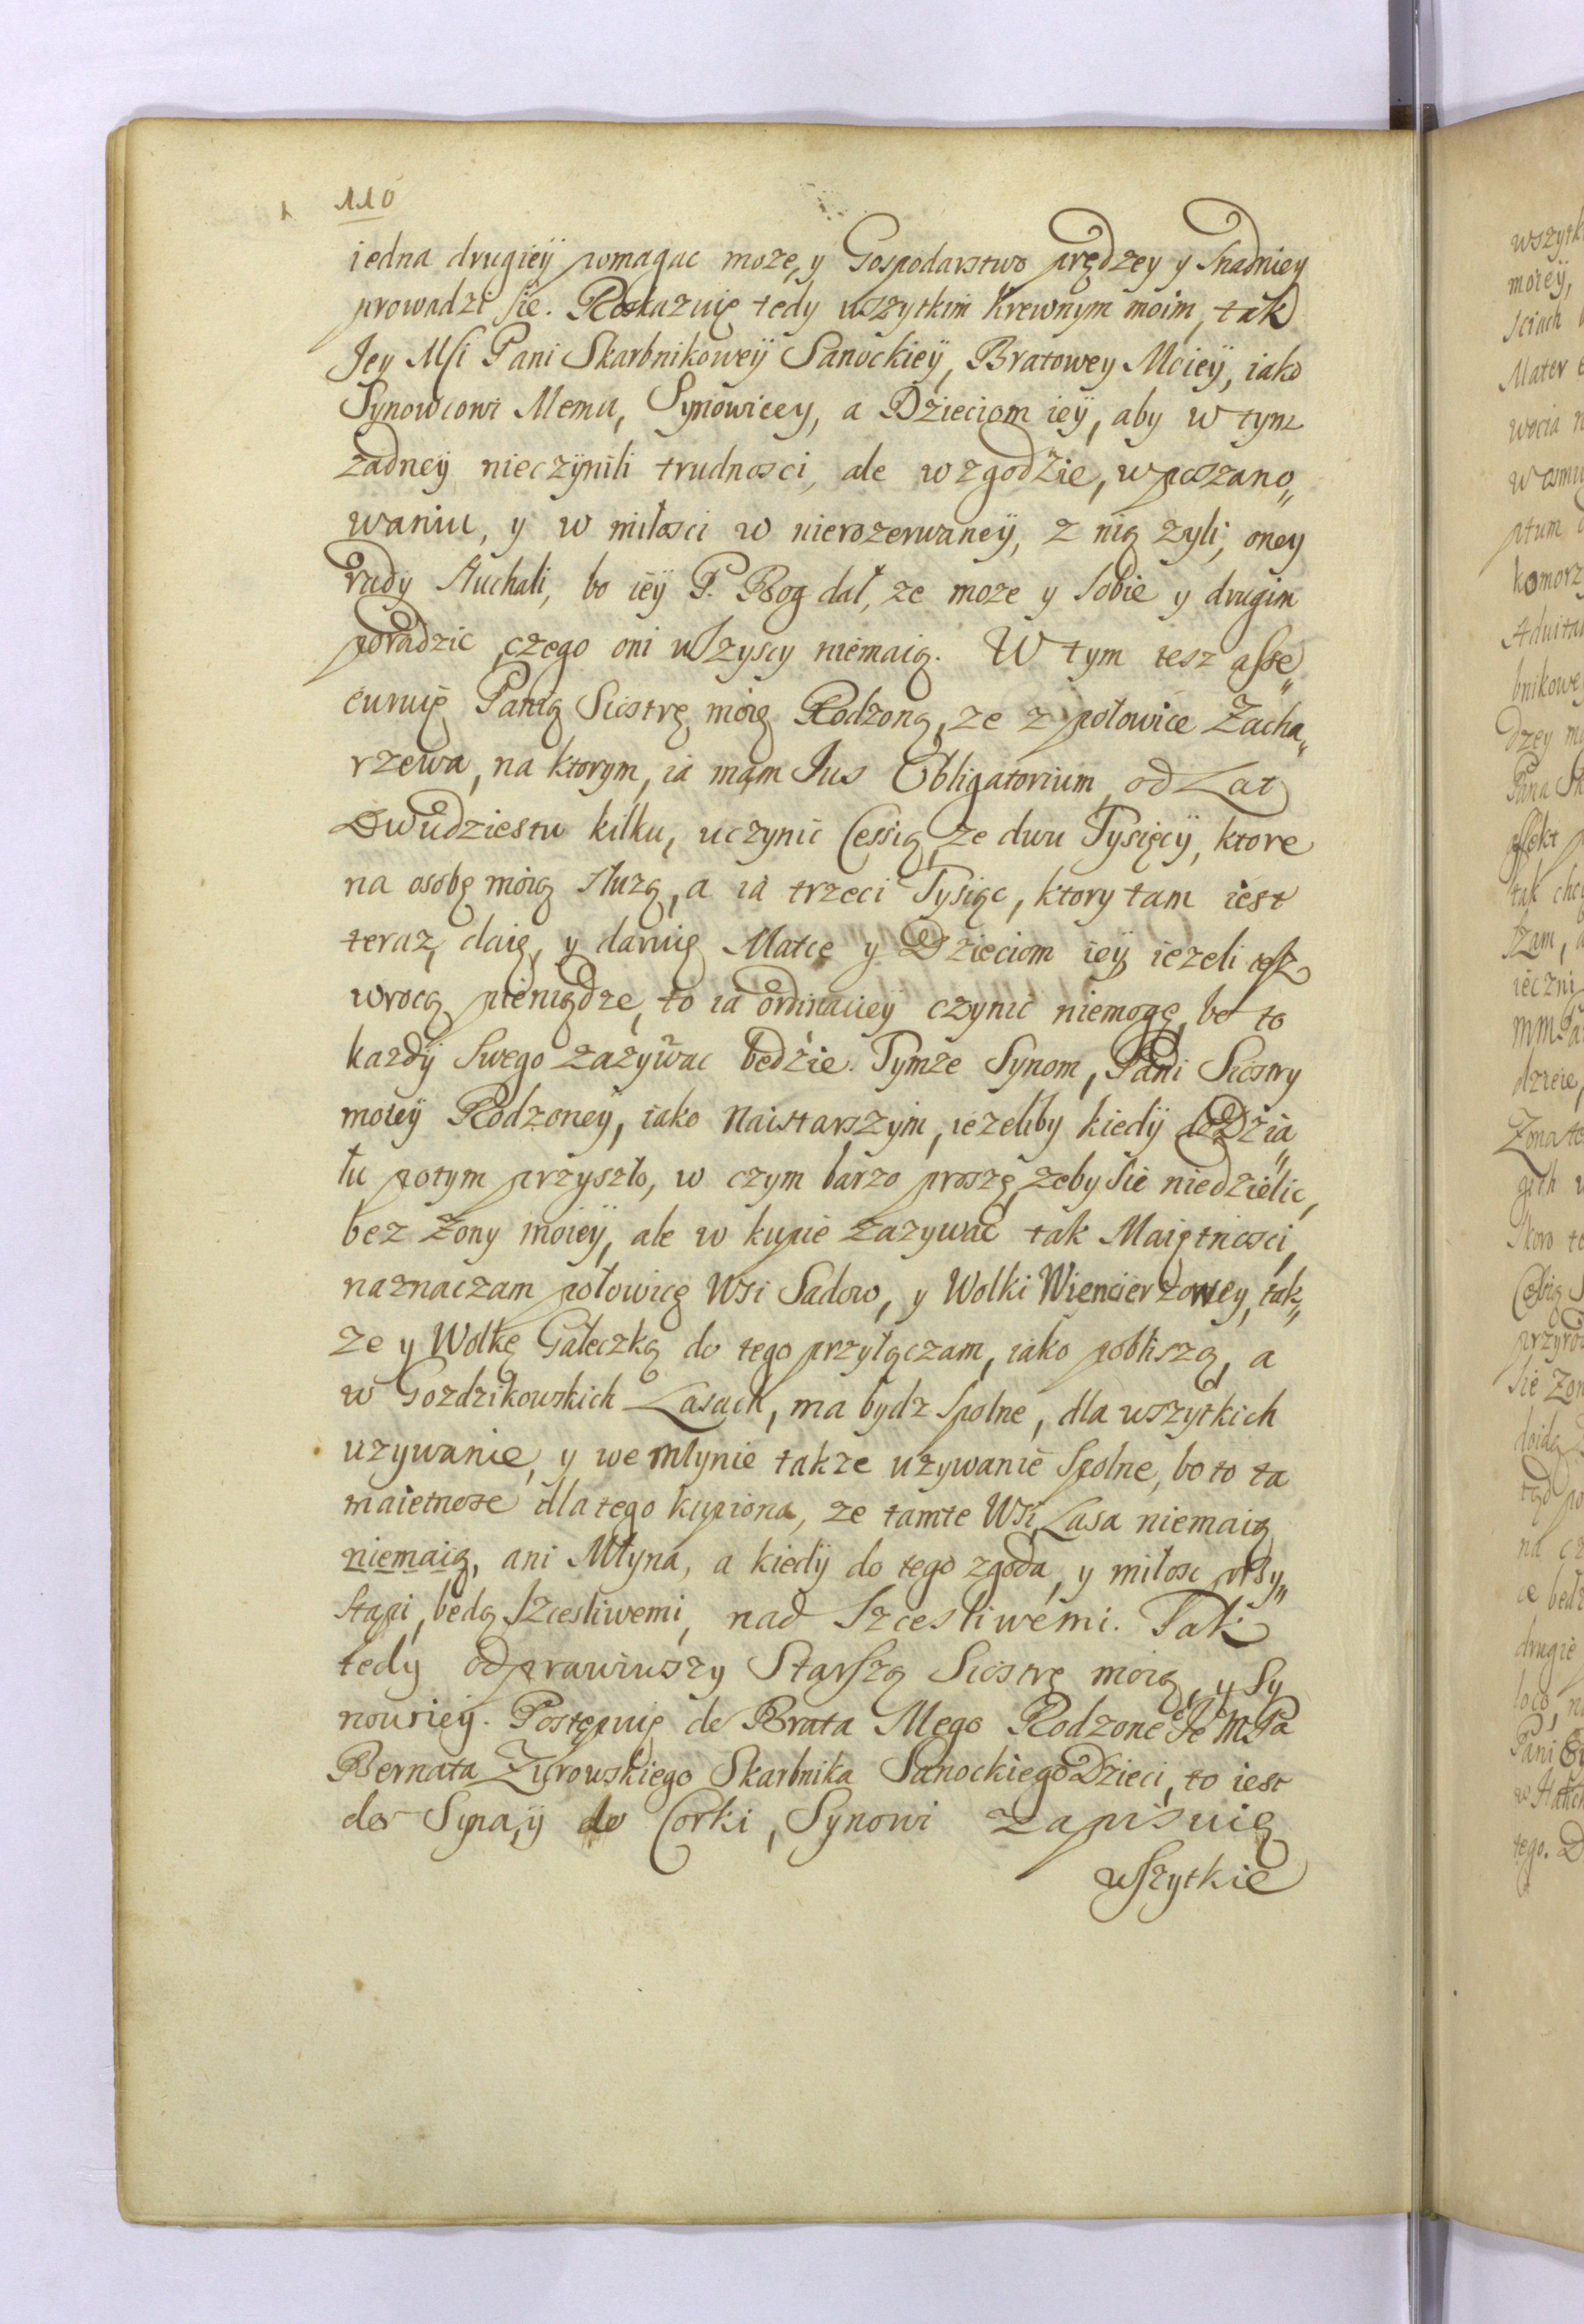 110
iedna drugieÿ pomagac może, y Gospodarstwo prędzey y snadniey
prowadzi sie. Roskazuię tedy wszytkim Krewnym moim, tak
Jey Msi Pani Skarbnikoweÿ Sanockieÿ, Bratowey Moieÿ, iako
Synowcowi Memu, Synowicey, a Dzieciom ieÿ, aby w tym
zadneÿ nieczÿnili trudnosci, ale w zgodzie, w poszano„
waniu, y w miłosci w nierozerwaneÿ, z nią zyli, oney
rady słuchali, bo ieÿ P. Bog dał, ze moze y sobie y drugim
poradzic, czego oni wszyscy niemaią. W tym tesz asse„
curuię Panią Siostrę moię Rodzoną, ze z połowice Zacha„
rzewa, na ktorym, ia mam Jus Obligatorium, od Lat
Dwudziestu kilku, uczynic Cessią, ze dwu Tysięcÿ, ktore
na osobę moię służą, a ia trzeci Tysiąc, ktory tam iest
teraz, daię, y daruię Matce y Dzieciom ieÿ iezeli iesz
wrocą pieniądze, to ia ordinaciey czynic niemogę, bo to
kazdÿ swego zazÿwac bedzie. Tymze Synom, Pani Siostry
moieÿ Rodzoneÿ, iako Naistarszÿm, iezeliby kiedÿ do Dzia„
łu potym przyszło, w czym barzo proszę, zeby sie niedzielic,
bez Zony moieÿ, ale w kupie zazywac tak Maiętnosci,
naznaczam połowicę Wsi Sadow, y Wolki Wiencierzowey, tak„
ze y Wolkę Gałeczką do tego przyłączam, iako pobliszą, a
w Gozdzikowskich Lasach, ma bydz spolne, dla wszytkich
uzywanie, y we Młynie takze uzywanie spolne, bo to ta
maietnosc dla tego kupiona, ze tamte Wsi, Lasa niemaią
niemaią, ani Młyna, a kiedÿ do tego zgoda, y miłosc przy„
stąpi, będą szcesliwemi, nad szcesliwemi. Tak
tedy odprawiwszy Starszą Siostrę moię, y Sy
now iey. Postępuię do Brata Mego Rodzone Je M Pa
Bernata Zurowskiego Skarbnika Sanockiego Dzieci, to iest
do Syna, ÿ do Corki, Synowi zapisuię
wszytkie